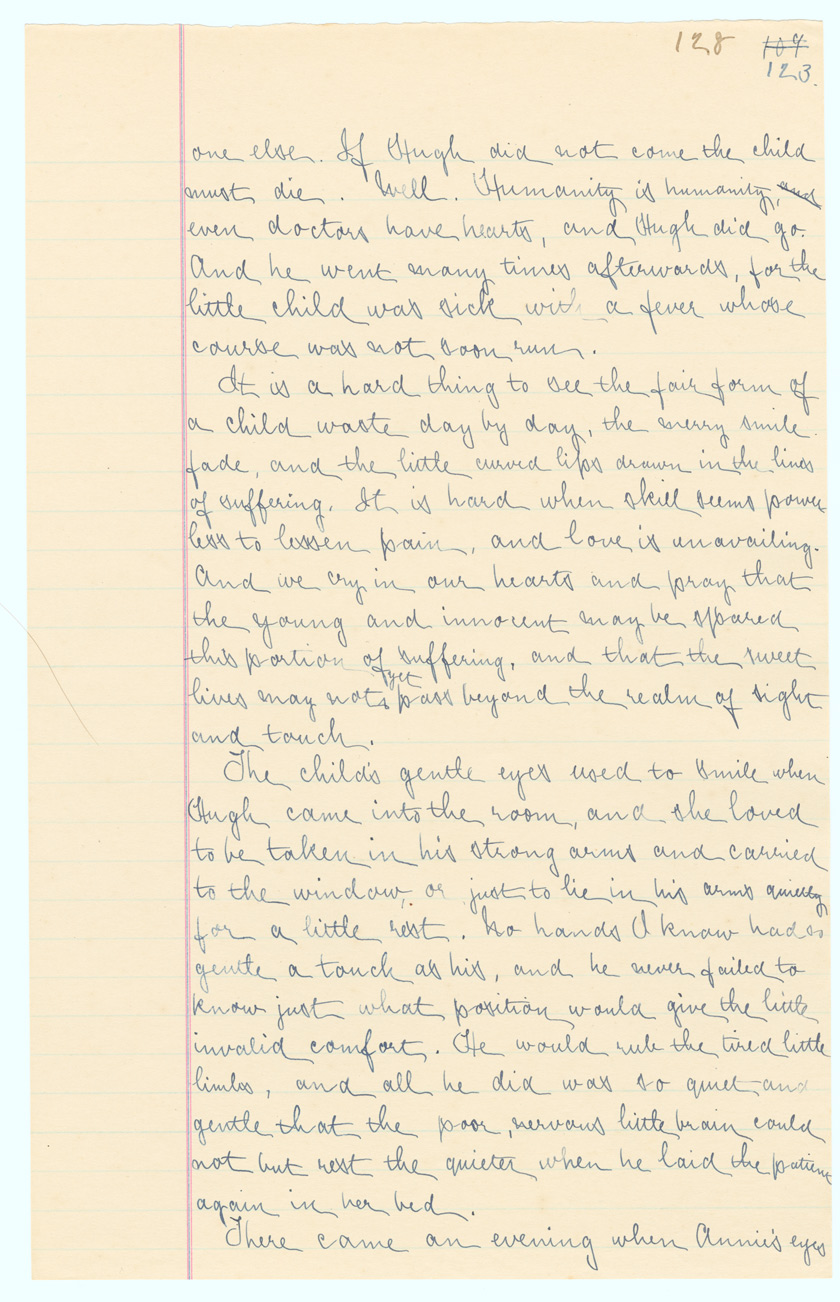 128 107
123.
one else. If Hugh did not come the child
must die. Well. Humanity is humanity, and
even doctors have hearts, and Hugh did go.
And he went many times afterwards, for the
little child was sick with a fever whose
course was not soon run.
It is a hard thing to see the fair form of
a child waste day by day, the merry smile
fade, and the little curved lips drawn in the lines
of suffering. It is hard when skill seems power-
less to lessen pain, and love is unavailing.
And we cry in our hearts and pray that
the young and innocent may be spared
this portion of suffering, and that the sweet
yet
lives may not pass beyond the realm of sight
and touch.
The child's gentle eyes used to smile when
Hugh came into the room, and she loved
to be taken in his strong arms and carried
to the window, or just to lie in his arms quietly
for a little rest. No hands I know had so
gentle a touch as his, and he never failed to
know just what position would give the little
invalid comfort. He would rub the tired little
limbs, and all he did was so quiet and
gentle that the poor, nervous little brain could
not but rest the quieter when he laid the patient
again in her bed.
There came an evening when Annie's eyes